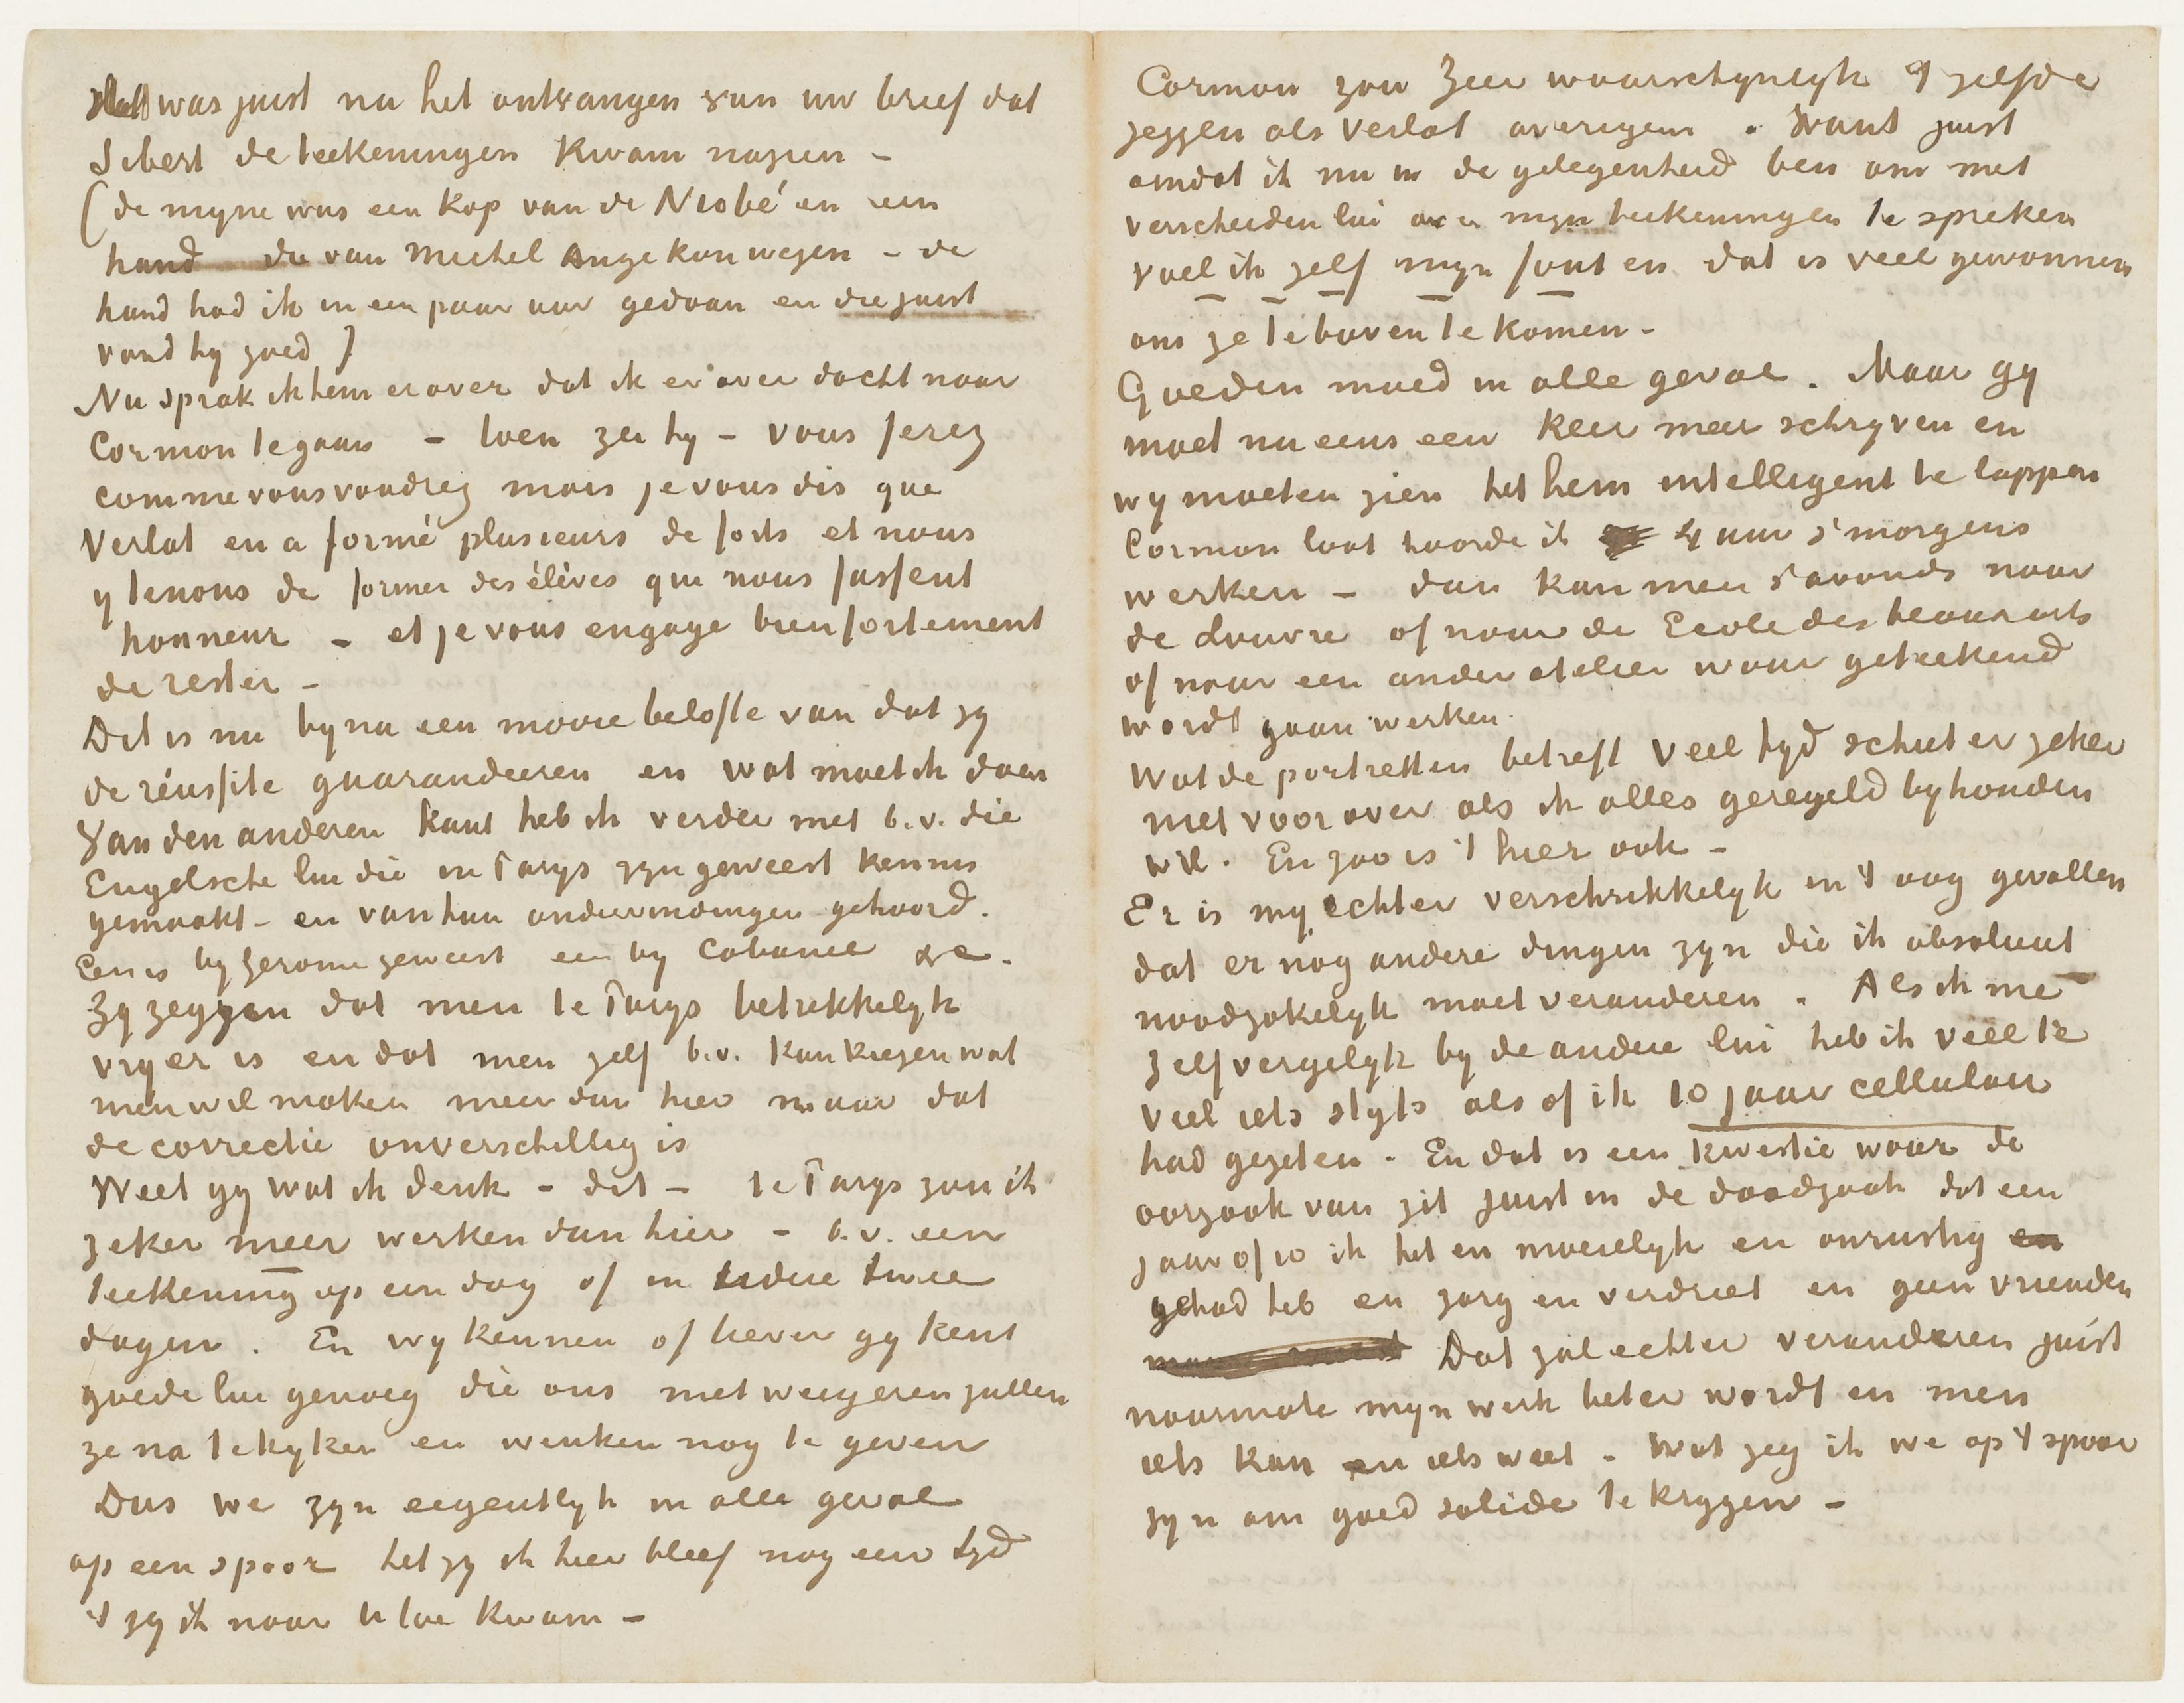 was juist na het ontvangen van uw brief dat
Sibert de teekeningen kwam nazien –
(de mijne was een kop van de Niobé en een
hand die van Michel Ange kon wezen – de
hand had ik in een paar uur gedaan en die juist
vond hij goed)
Nu sprak ik hem erover dat ik er over dacht naar
Cormon te gaan – toen zei hij – vous ferez
comme vous voudrez mais je vous dis que
Verlat en a formé plusieurs de forts et nous
y tenons de former des élèves qui nous fassent
honneur – et je vous engage bien fortement
de rester –
Dit is nu bijna een mooie belofte van dat zij
de réussite guarandeeren en wat moet ik doen
Van den anderen kant heb ik verder met b.v. die
Engelsche lui die in Parijs zijn geweest kennis
gemaakt – en van hun ondervindingen gehoord.
Een is bij Gerome geweest een bij Cabanel &c.
Zij zeggen dat men te Parijs betrekkelijk
vrijer is en dat men zelf b.v. kan kiezen wat
men wil maken meer dan hier maar dat
de correctie onverschillig is
Weet gij wat ik denk – dit – te Parijs zou ik
zeker meer werken dan hier – b.v. een
teekening op een dag of in iedere twee
dagen. En wij kennen of liever gij kent
goede lui genoeg die ons niet weigeren zullen
ze na te kijken en wenken nog te geven
Dus we zijn eigentlijk in alle geval
op een spoor het zij ik hier bleef nog een tijd
't zij ik naar U toe kwam –
Cormon zou zeer waarschijnlijk 't zelfde
zeggen als Verlat overigens. Want juist
omdat ik nu in de gelegenheid ben om met
verscheiden lui over mijn teekeningen te spreken
voel ik zelf mijn fout en dat is veel gewonnen
om ze te boven te komen –
Goeden moed in alle geval. Maar gij
moet nu eens een keer meer schrijven en
wij moeten zien het hem intelligent te lappen
Cormon laat hoorde ik 4 uur s'morgens
werken – dan kan men s'avonds naar
de Louvre of naar de Ecole des beaux arts
of naar een ander atelier waar geteekend
wordt gaan werken.
Wat de portretten betreft veel tijd schiet er zeker
niet voor over als ik alles geregeld bijhouden
wil. En zoo is 't hier ook –
Er is mij echter verschrikkelijk in 't oog gevallen
dat er nog andere dingen zijn die ik absoluut
noodzakelijk moet veranderen. Als ik me
zelf vergelijk bij de andere lui heb ik veel te
veel iets stijfs als of ik 10 jaar cellulair
had gezeten. En dat is een kwestie waar de
oorzaak van zit juist in de daadzaak dat een
jaar of 10 ik het en moeielijk en onrustig en
gehad heb en zorg en verdriet en geen vrienden
Dat zal echter veranderen juist
naarmate mijn werk beter wordt en men
iets kan en iets weet. Wat zeg ik we op 't spoor
zijn om goed solide te krijgen –